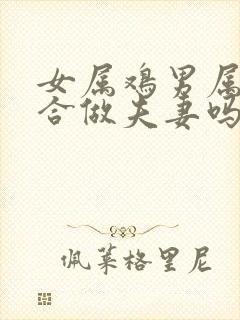 女属鸡男属
合做夫妻吗
佩莱格里尼